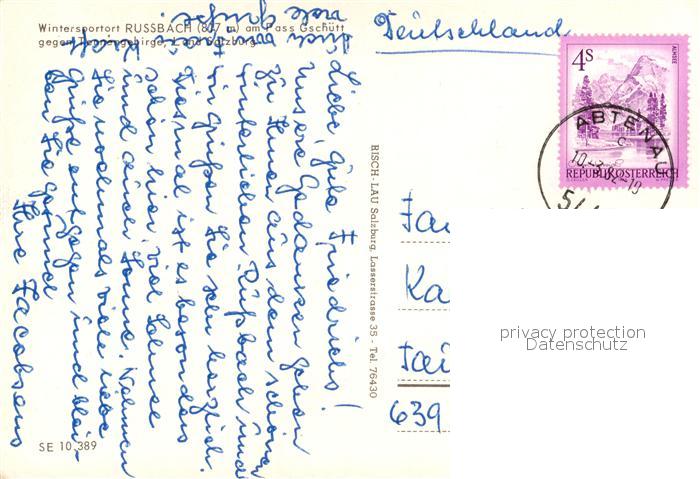 Wintersportort RUSSBACH (817 m) am Pass Gschütt
gegen Tennengebirge, Land Salzburg
Deutschland
4S
ALMSEE
REPUBLIK ÖSTERREICH
ABTENAU
Liebe, gute Friedrichs!
Unsere Gedanken gehen
zu Ihnen aus dem schönen
winterlichen Rußbach und
wir grüßen Sie sehr herzlich.
Diesmal ist es besonders
schön hier, viel Schnee
und auch Sonne. Nehmen
Sie nochmals viele liebe
Grüße entgegen und blei-
ben Sie gesund
Ihre Jacobsens
viele Grüße
RISCH-LAU Salzburg, Lasserstrasse 35 - Tel. 76430
Fa
Ka
639
SE 10 389
privacy protection
Datenschutz